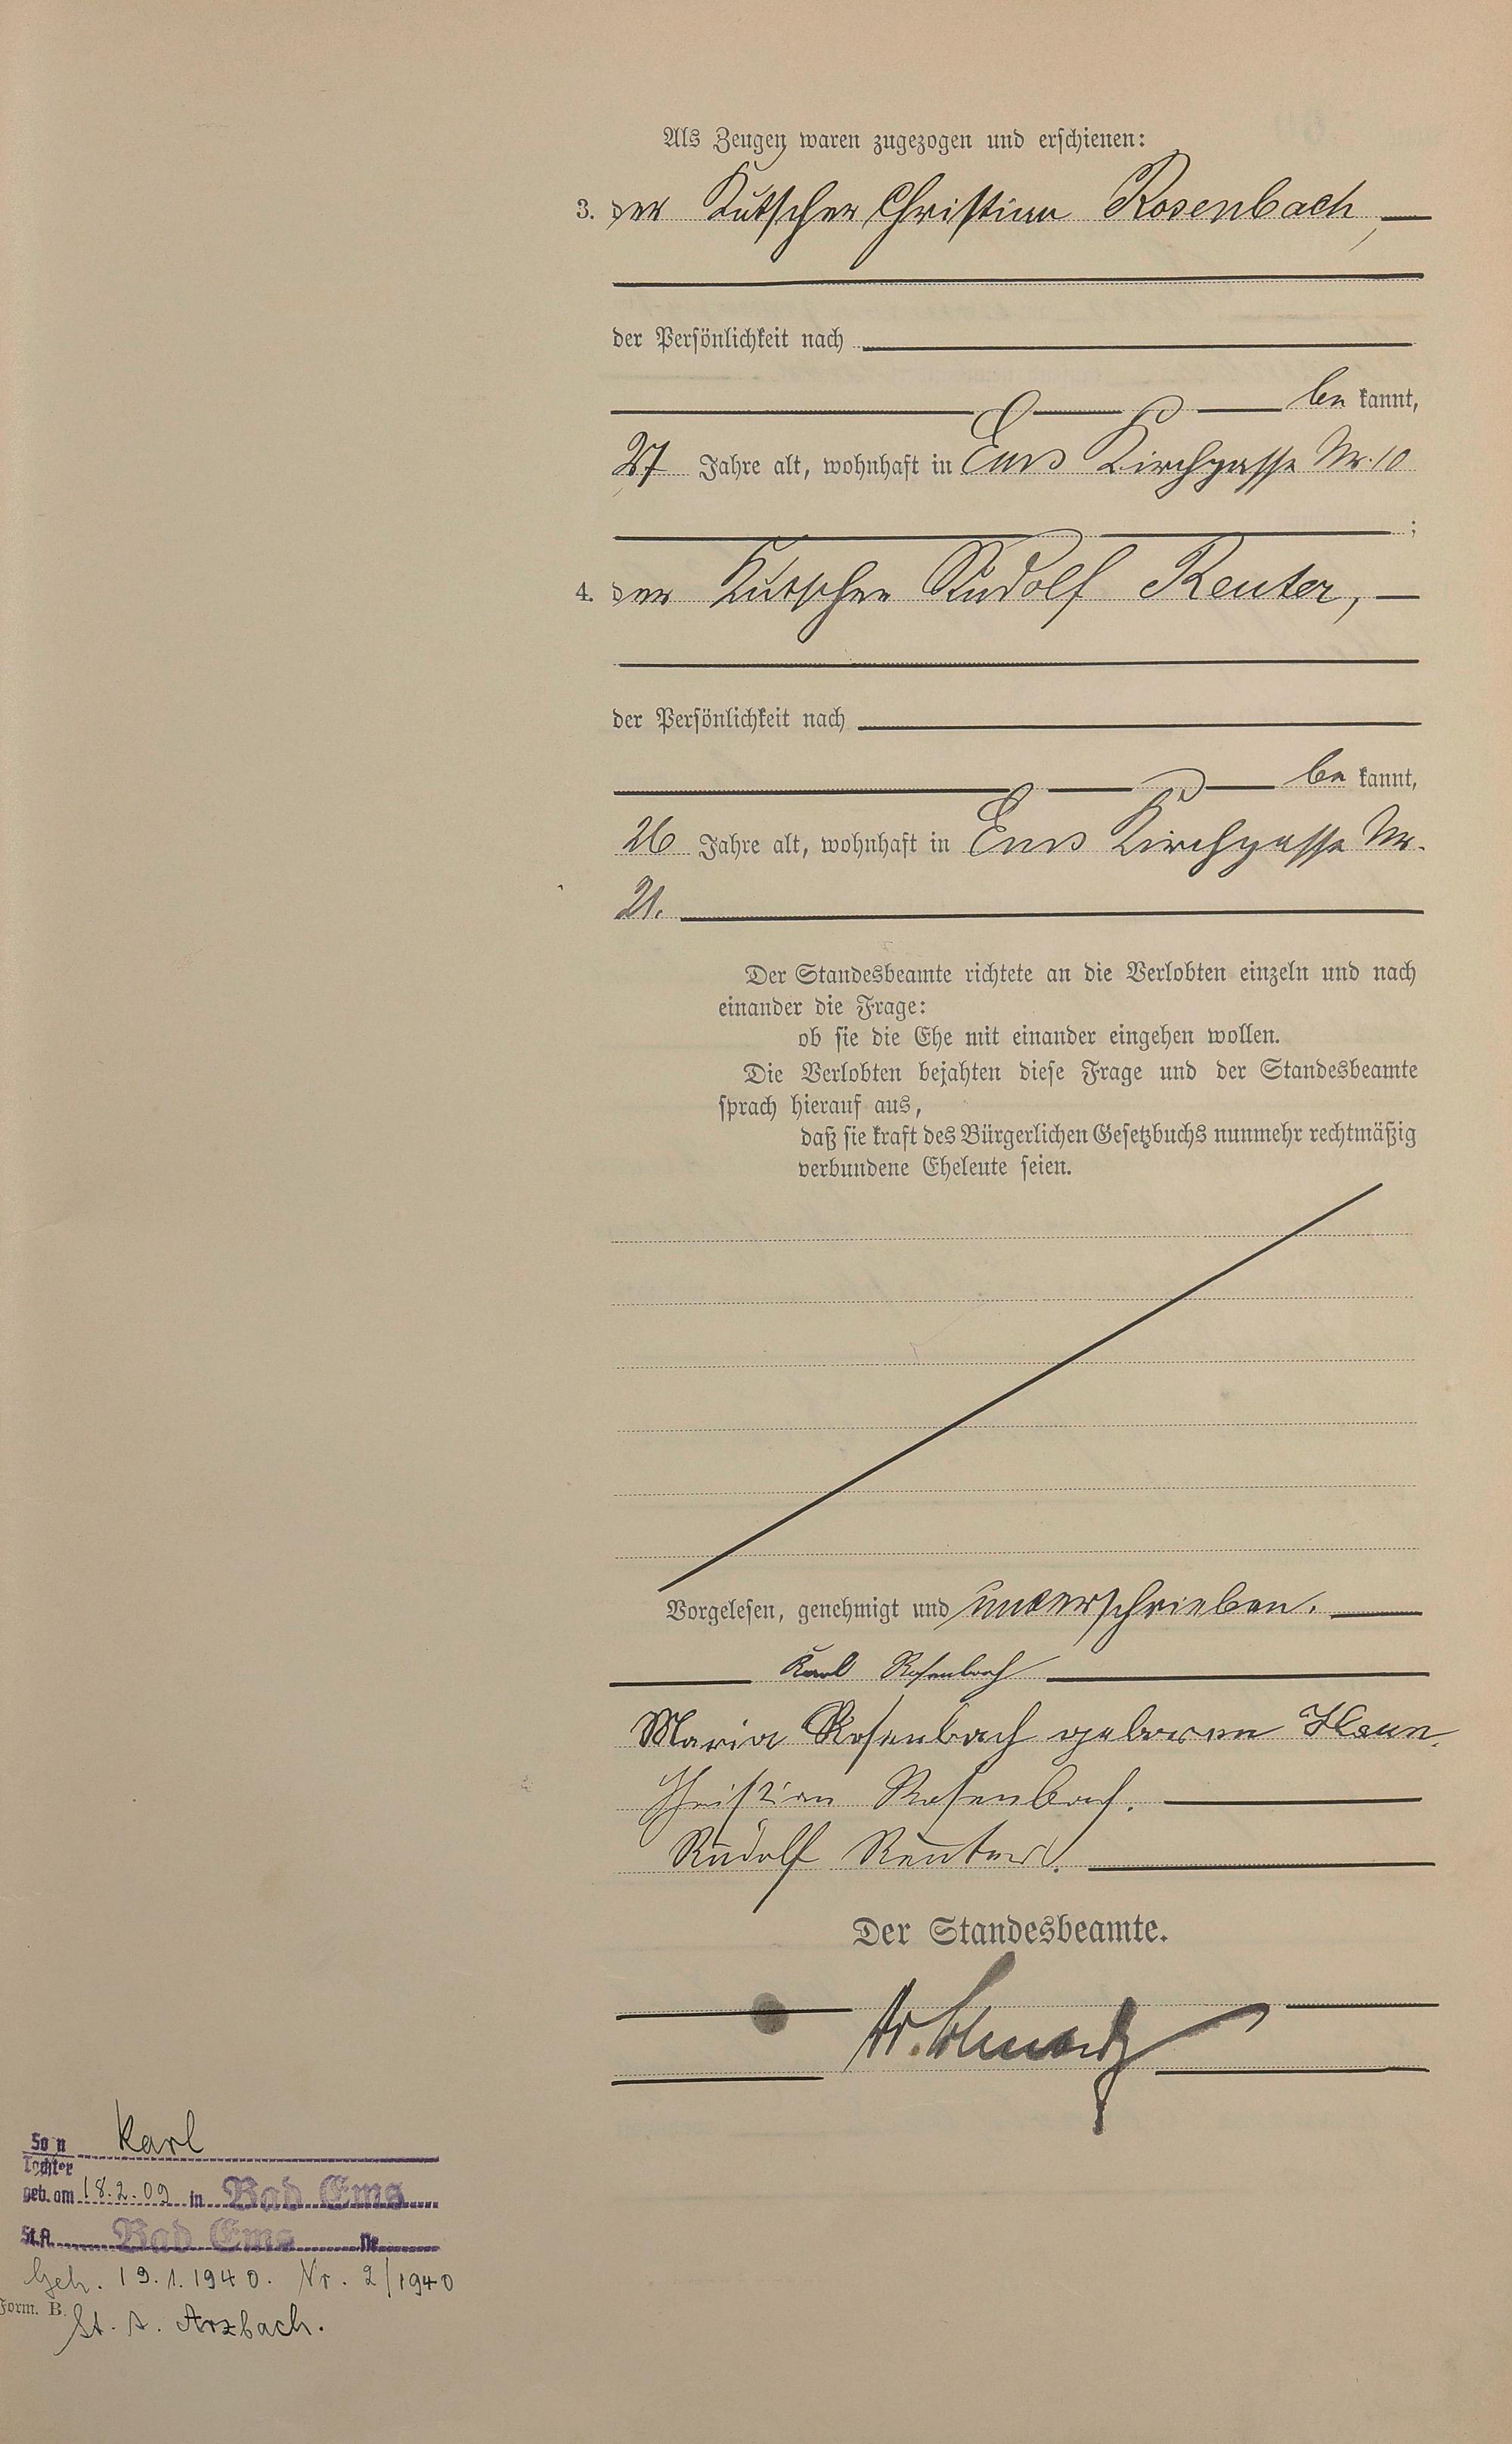 Als Zeugen waren zugezogen und erschienen:
3. der Kutscher Christian Rosenbach,
der Persönlichkeit nach
be kannt,
27 Jahre alt, wohnhaft in Ems Kirchgasse Nr. 10
;
4. der Kutscher Rudolf Reuter,
der Persönlichkeit nach
be kannt,
26 Jahre alt, wohnhaft in Ems Kirchgasse Nr.
21.
Der Standesbeamte richtete an die Verlobten einzeln und nach
einander die Frage:
ob sie die Ehe mit einander eingehen wollen.
Die Verlobten bejahten diese Frage und der Standesbeamte
sprach hierauf aus,
daß sie kraft des Bürgerlichen Gesetzbuchs nunmehr rechtmäßig
verbundene Eheleute seien.
Vorgelesen, genehmigt und unterschrieben.
Karl Rosenbach
Maria Rosenbach geborene
Christian Rosenbach.
Rudolf Reuter.
Der Standesbeamte.
Sohn Karl
Tochter
geb. am 18.2.09 in Bad Ems
St.A. Bad Ems Nr.
Geh. 19.1.1940. Nr. 2/1940
Form. B.
St. A. Arzbach.